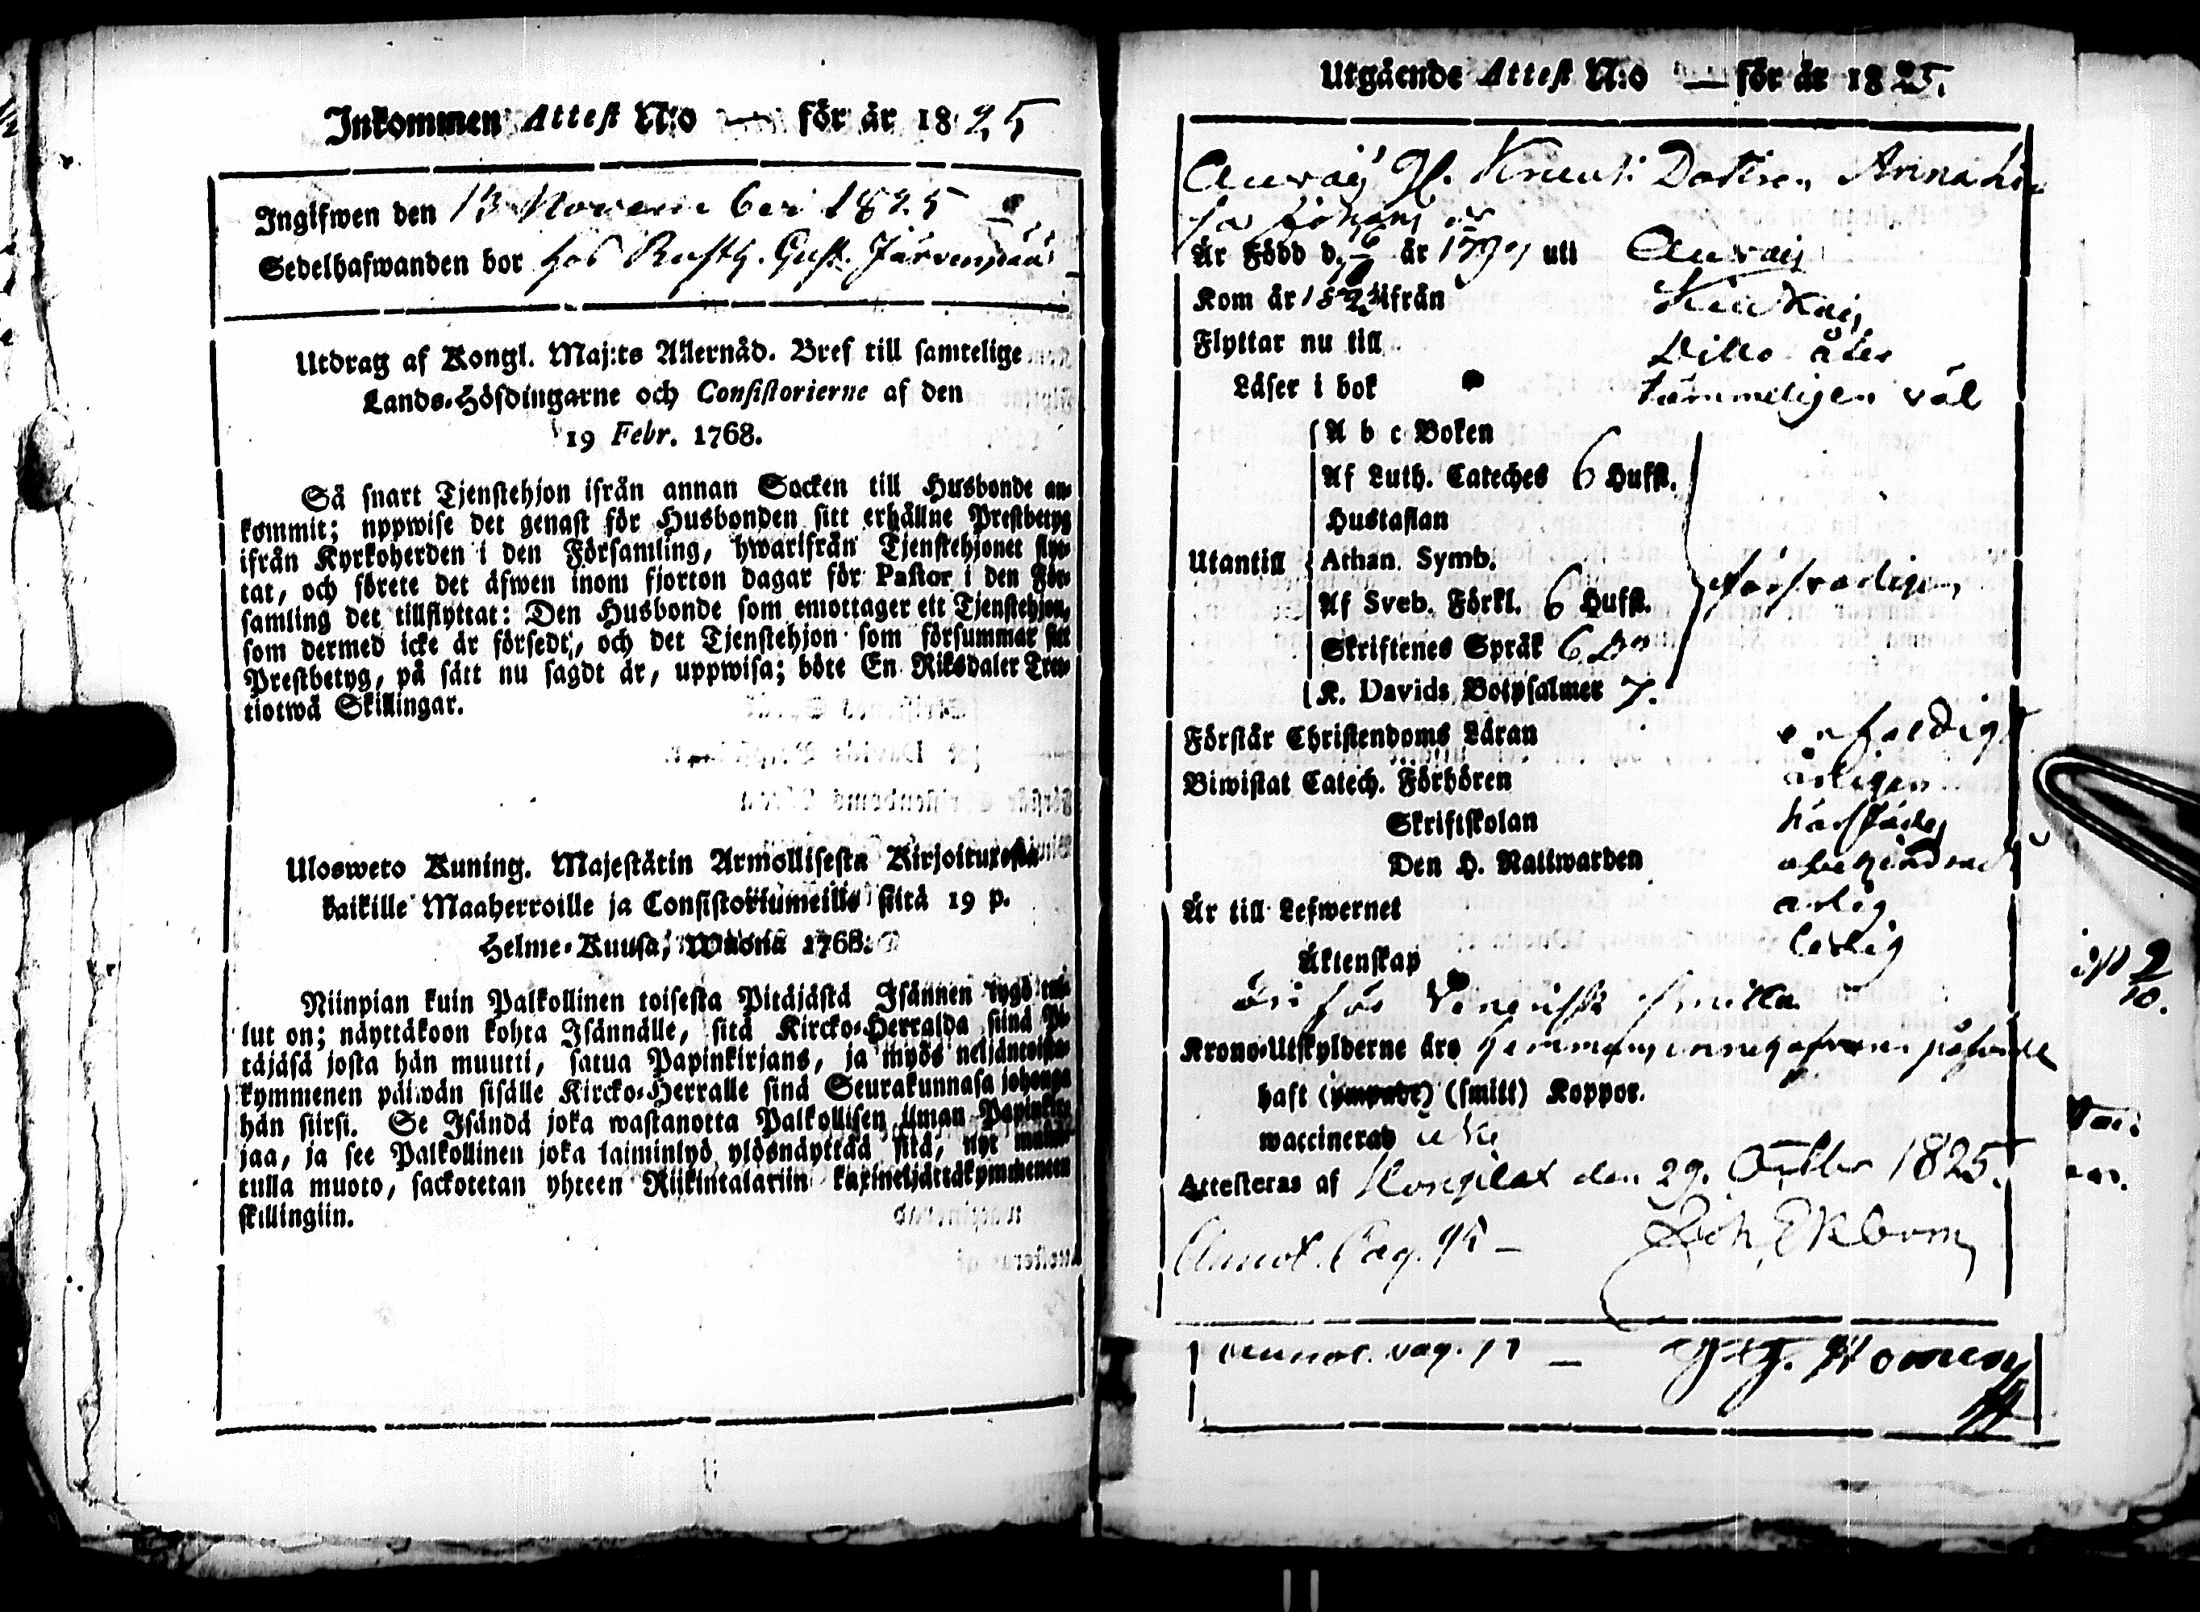 Inkommen Attest N:o — för år 1825
Ingifwen den 13 Novemberi 1825
Sedelhafwanden bor hos Rusth. Gust. Järvenpää
Utdrag af Kongl. Maj:ts Allernåd. Bref till samtelige
Lands-Höfdingarne och Consistorierne af den
19 Febr. 1768.
Så snart Tjenstehjon ifrån annan Socken till Husbonde an-
kommit; uppwise det genast för Husbonden sitt erhållne Prestbetyg
ifrån Kyrkoherden i den Församling, hwarifrån Tjenstehjonet flyt-
tat, och förete det äfwen inom fjorton dagar för Pastor i den För-
samling det tillflyttat: Den Husbonde som emottager ett Tjenstehjon,
som dermed icke är försedt, och det Tjenstehjon som försummar sitt
Prestbetyg, på sätt nu sagdt är, uppwisa; böte En Riksdaler Tret-
tiotwå Skillingar.
Ulosweto Kuning. Majestätin Armollisesta Kirjoituxesta
kaikille Maaherroille ja Consistoriumeille siitä 19 p.
Helme-Kuusa, Wuona 1768.
Niinpian kuin Palkollinen toisesta Pitäjästä Isännen tygö tul-
lut on; näyttäkoon kohta Isännälle, sitä Kircko-Herralda siinä Pi-
täjäsä josta hän muutti, satua Papinkirjans, ja myös neljäntoista-
kymmenen päiwän sisälle Kircko-Herralle sinä Seurakunnasa johonga
hän siirsi. Se Isändä joka wastanotta Palkollisen ilman Papinkir-
jaa, ja see Palkollinen joka laiminlyö ylösnäyttää sitä, nyt
tulla muoto, sackotetan yhteen Riikintalariin kaxineljättäkymmeneen
skillingiin.
Utgående Attest N:o — för år 1825.
Auvaij H. Knuuti Dottren Anna
Är Född d. år 179 uti Auvaij
Kom år 182 ifrån Kiukais
Flyttar nu till Ditto åter
Läser i bok tämmeligen väl
A b c Boken
Af Luth. Cateches 6 Hufst.
Hustaflan
Utantill Athan. Symb. försvarligen
Af Sveb. Förkl. 6 Hufst.
Skriftenes Språk 6 Do
K. Davids Botpsalmer 7.
Förstår Christendoms Läran enfaldigt
Biwistat Catech. Förhören årligen
Skriftskolan härstädes
Den H. Nattwarden obehindrad
Är till Lefwernet ärlig
Äktenskap ledig
Fri för Venerisk smitta
Krono-Utskylderne äro
haft (ympade) (smitt) Koppor.
waccinerad icke
Attesteras af den 29. October 1825.
Annot. Pag. 95 — Joh. Ekbom
Annot. pag. 11 —